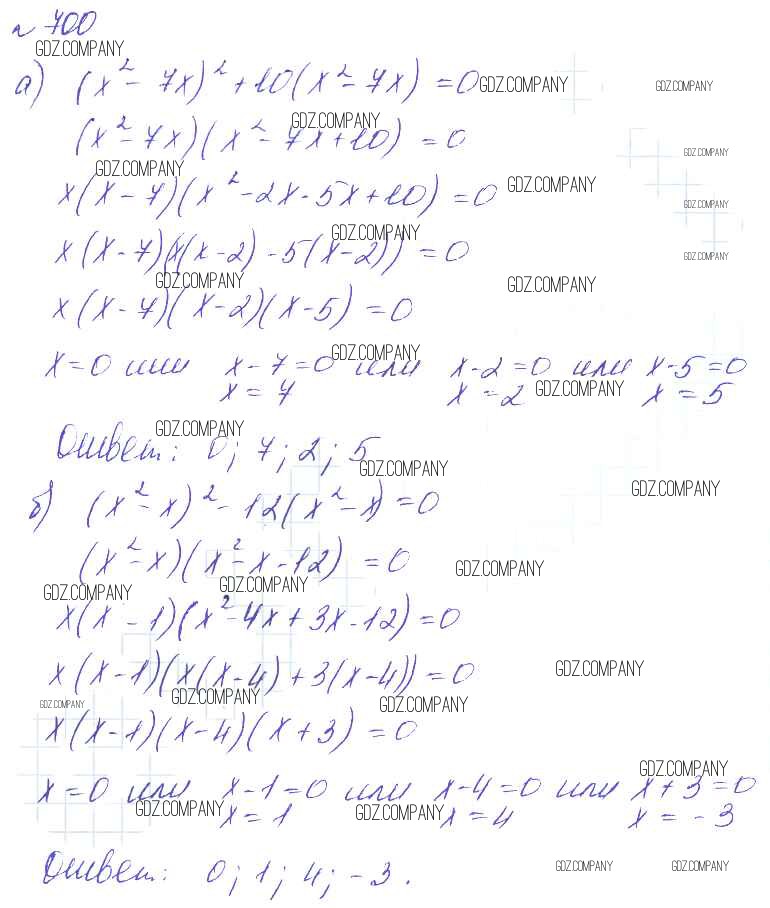 № 700
GDZ.COMPANY
а) (x² - 7x)² + 10(x² - 7x) = 0 GDZ.COMPANY GDZ.COMPANY
GDZ.COMPANY
(x² - 7x)(x² - 7x + 10) = 0 GDZ.COMPANY
GDZ.COMPANY
x(x - 7)(x² - 2x - 5x + 10) = 0 GDZ.COMPANY GDZ.COMPANY
GDZ.COMPANY
x(x - 7)(x(x - 2) - 5(x - 2)) = 0 GDZ.COMPANY
GDZ.COMPANY GDZ.COMPANY
x(x - 7)(x - 2)(x - 5) = 0
GDZ.COMPANY
x = 0 или x - 7 = 0 или x - 2 = 0 или x - 5 = 0
x = 7 x = 2 GDZ.COMPANY x = 5
GDZ.COMPANY
Ответ: 0; 7; 2; 5
GDZ.COMPANY
GDZ.COMPANY
б) (x² - x)² - 12(x² - x) = 0
(x² - x)(x² - x - 12) = 0 GDZ.COMPANY
GDZ.COMPANY GDZ.COMPANY
x(x - 1)(x² - 4x + 3x - 12) = 0
x(x - 1)(x(x - 4) + 3(x - 4)) = 0 GDZ.COMPANY
GDZ.COMPANY GDZ.COMPANY GDZ.COMPANY
x(x - 1)(x - 4)(x + 3) = 0
GDZ.COMPANY
x = 0 или x - 1 = 0 или x - 4 = 0 или x + 3 = 0
GDZ.COMPANY x = 1 GDZ.COMPANY x = 4 x = - 3
Ответ: 0; 1; 4; -3. GDZ.COMPANY GDZ.COMPANY